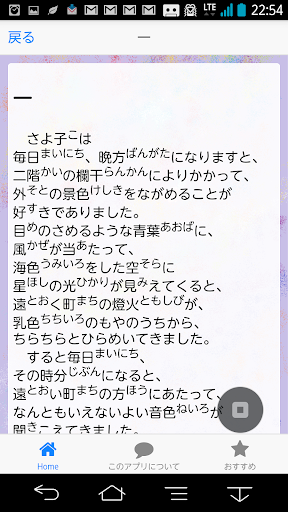 LTE 22:54
戻る 一
一
さよ子こは
毎日まいにち、晩方ばんがたになりますと、
二階かいの欄干らんかんによりかかって、
外そとの景色けしきをながめることが
好すきでありました。
目めのさめるような青葉あおばに、
風かぜが当あたって、
海色うみいろをした空そらに
星ほしの光ひかりが見みえてくると、
遠とおく町まちの燈火ともしびが、
乳色ちちいろのもやのうちから、
ちらちらとひらめいてきました。
すると毎日まいにち、
その時分じぶんになると、
遠とおい町まちの方ほうにあたって、
なんともいえないよい音色ねいろが
聞きこえてきました。
Home このアプリについて おすすめ